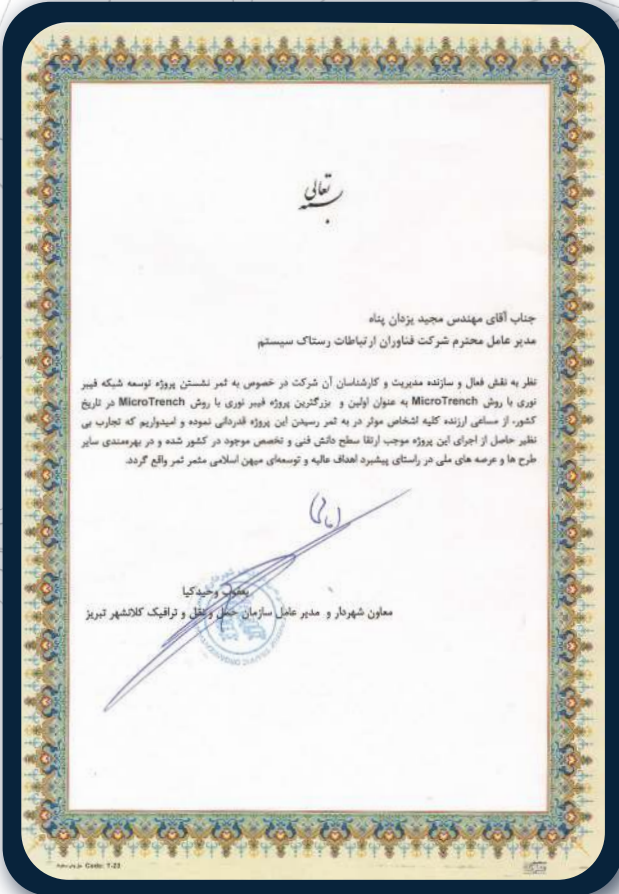 بسمه تعالی
جناب آقای مهندس مجید یزدان پناه
مدیر عامل محترم شرکت فناوران ارتباطات رستاک سیستم
نظر به نقش فعال و سازنده مدیریت و کارشناسان آن شرکت در خصوص به ثمر نشستن پروژه توسعه شبکه فیبر
نوری با روش MicroTrench به عنوان اولین و بزرگترین پروژه فیبر نوری با روش MicroTrench در تاریخ
کشور، از مساعی ارزنده کلیه اشخاص موثر در به ثمر رسیدن این پروژه قدردانی نموده و امیدواریم که تجارب بی
نظیر حاصل از اجرای این پروژه موجب ارتقا سطح دانش فنی و تخصص موجود در کشور شده و در بهره‌مندی سایر
طرح ها و عرصه های ملی در راستای پیشبرد اهداف عالیه و توسعه‌ای میهن اسلامی مثمر ثمر واقع گردد.
یعقوب وحیدکیا
معاون شهردار و مدیر عامل سازمان حمل و نقل و ترافیک کلانشهر تبریز
Code: Y-23